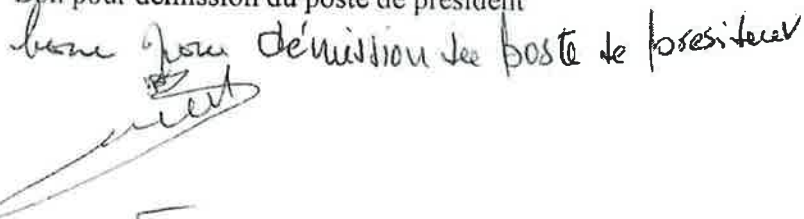 Bon pour démission du poste de président
bon pour démission du poste de president